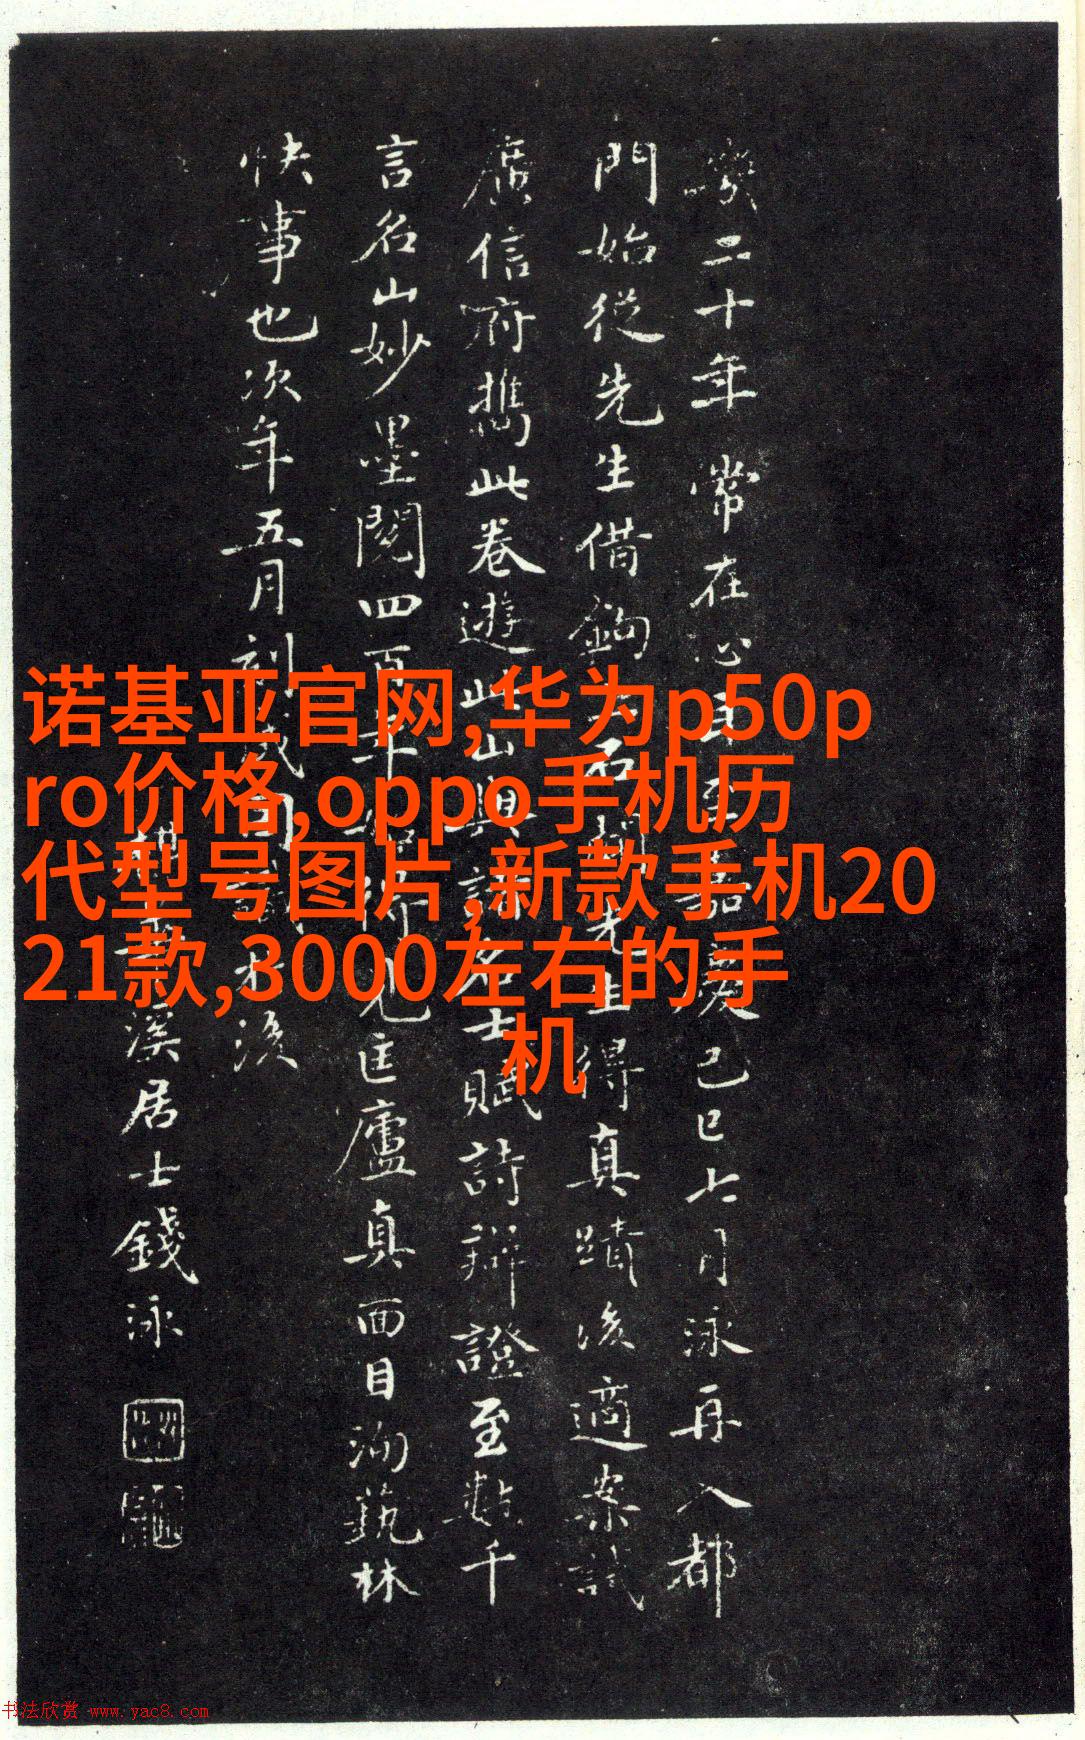 诺基亚官网,华为p50p
ro价格,oppo手机历
代型号图片,新款手机20
21款,3000左右的手
机
二十年常在心目至嘉慶己巳七月泳再入都
門始從先生借鉤石先生得真蹟後適案試
廣信府攜此卷遊此山與諸名士賦詩辯證至數千
言名山妙墨閱四百年見匡廬真面目洵藝林
快事也次年五月刻成因識後
溪居士錢泳
书法欣赏 www.yac8.com